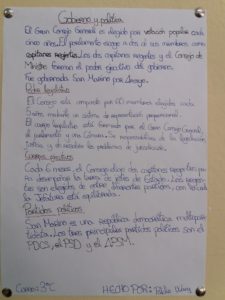 Gobierno y política
El Gran Consejo General es elegido por votación popular cada
cinco años. El parlamento escoge a dos de sus miembros como
capitanes regentes. Los dos capitanes regentes y el Consejo de
Ministros forman el poder ejecutivo del gobierno.
Fue gobernada San Marino por
Poder legislativo
El Consejo está compuesto por 60 miembros elegidos cada
5 años mediante un sistema de representación proporcional.
El cuerpo legislativo está formado por el Gran Consejo General,
el parlamento y una Cámara. Se responsabiliza de la legislación
justicia, y de los problemas de
Cuerpo ejecutivo
Cada 6 meses, el Consejo elige dos capitanes regentes pa-
ra desempeñar las tareas de jefes de Estado. Los regen-
tes son elegidos de entre diferentes partidos políticos, con lo cual
la Jefatura está equilibrada.
Partidos políticos
San Marino es una república democrática multipar-
tidista. Los tres principales partidos políticos son el
PDCS, el PSD y el APSM.
Curso: 3ºC HECHO POR: Pablo